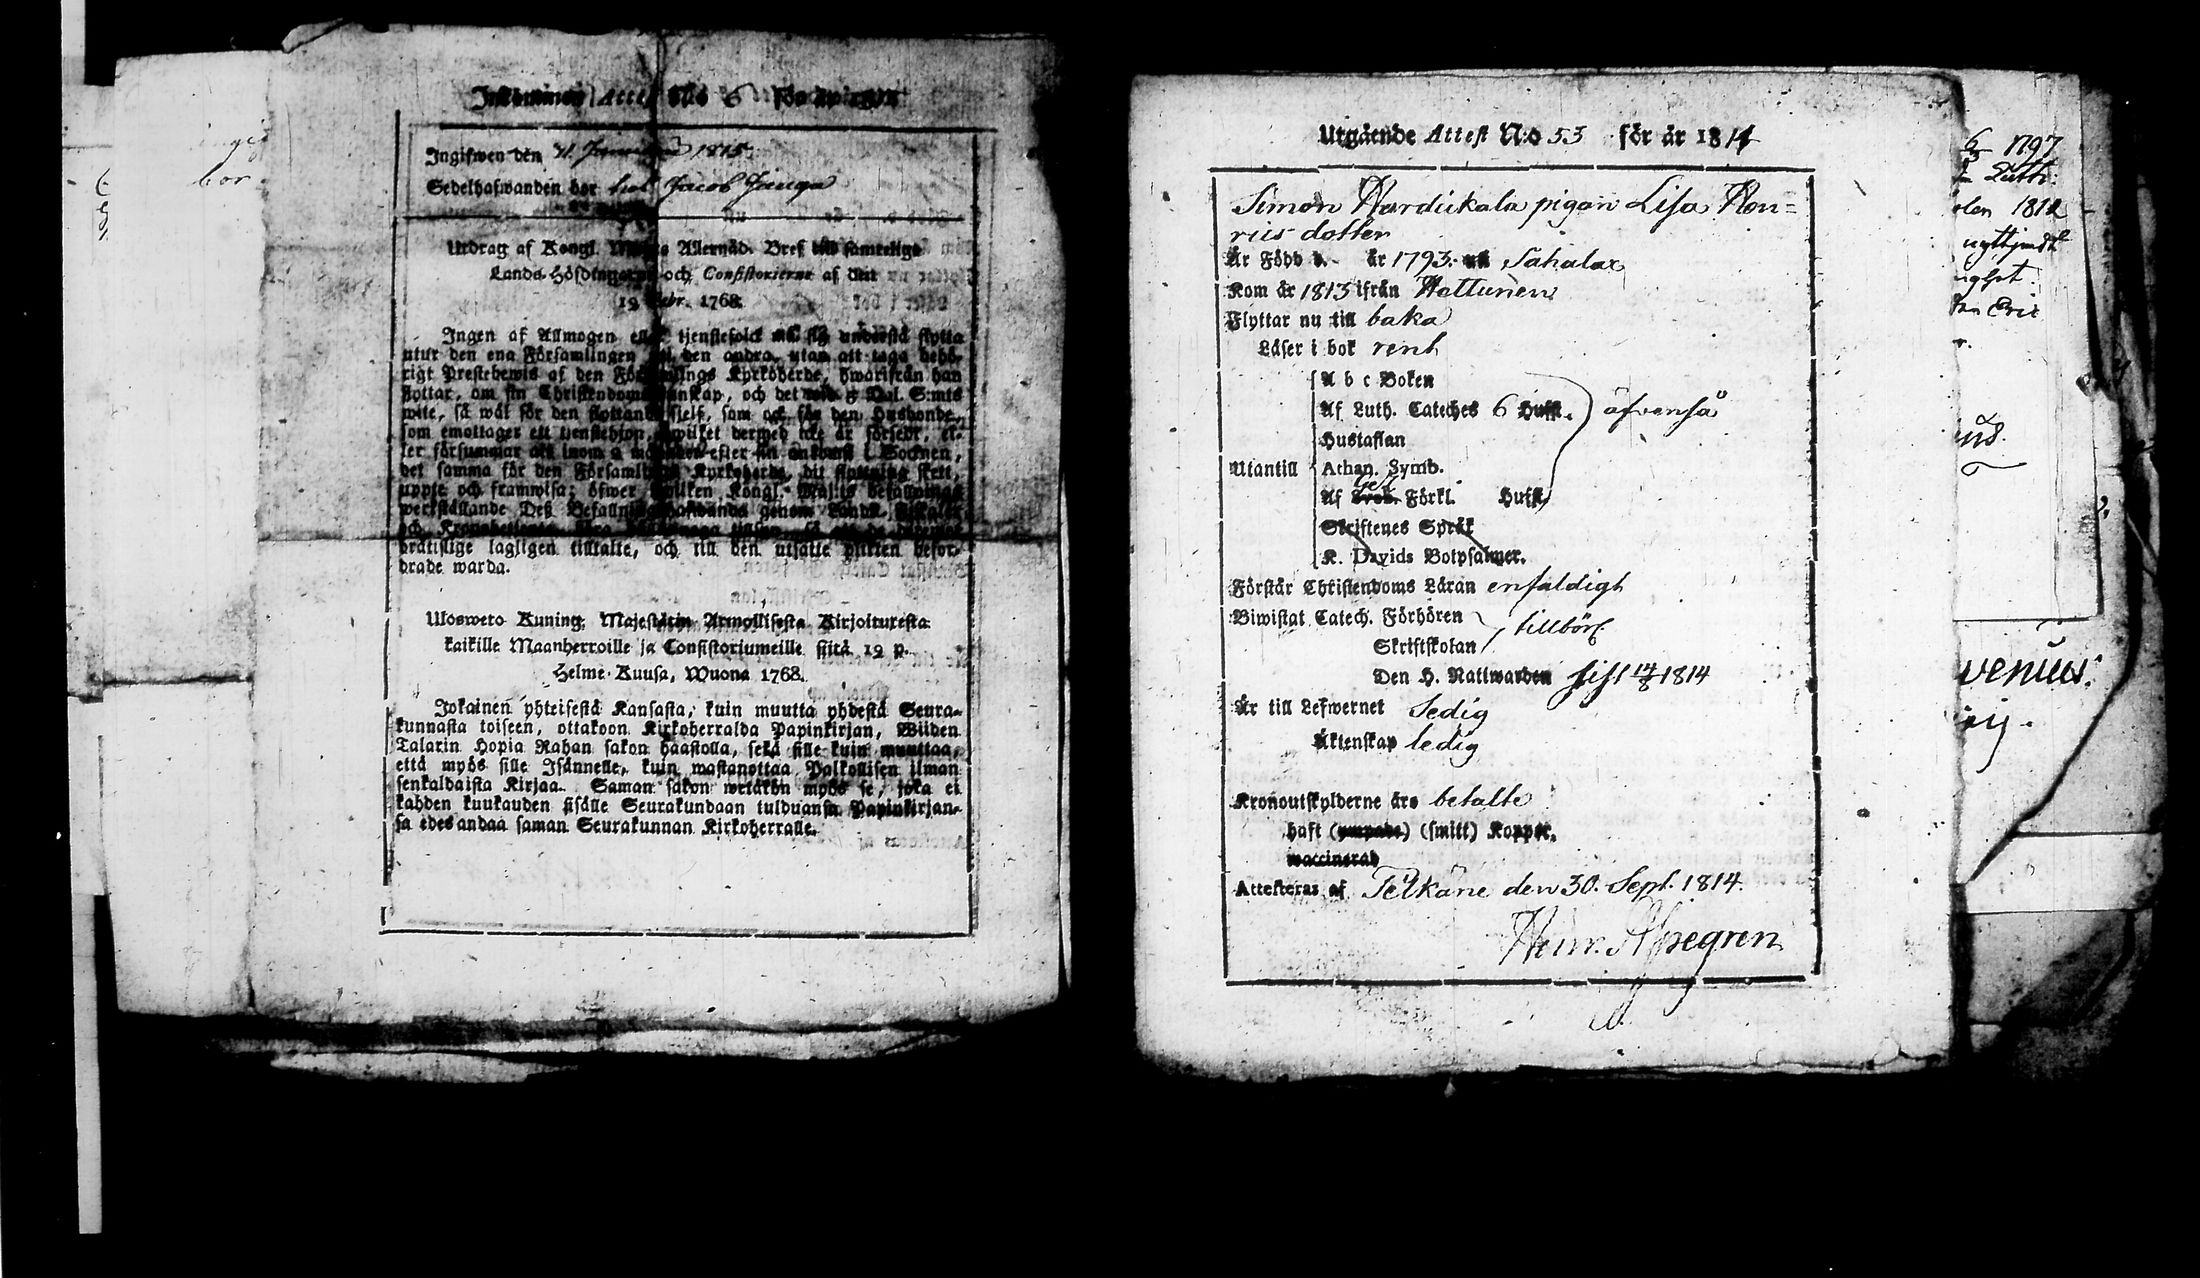 ingif
bor
Inkommen Attest N:o 6 för år 181
Ingifwen den 21 Januari 1815.
Sedelhafwanden bor hos Jacob Jauga
Utdrag af Kongl. Allernåd. Bref till samtelige
Lands-Höfdingarne och Consistorierne af den
19 Febr. 1768.
Ingen af Allmogen eller tjenstefolck må sig understå flytta
utur den ena Församlingen til den andra, utan att taga behö-
rigt Prestebewis af den Församlings Kyrkoherde, hwarifrån han
flyttar, om sin Christendoms kunskap, och det wid 5 Dal. S:mts
wite, så wäl för den flyttande sjelf, som ock för den Husbonde,
som emottager ett tjenstehjon, hwilket dermed icke är försedt, el-
ler försummar att inom 2 månader efter sin ankomst i Socknen,
det samma för den Församlings Kyrkoherde, dit flyttning skett,
uppte och framwisa; öfwer hwilken Kongl. Maj:ts befallnings
werkställande Deß Befallningshafwande genom Landt Fiskaler
och Kronobetjente
brättslige lagligen tilltalte, och till den utsatte plikten befor-
drade warda.
Ulosweto Kuning. Majestätin Armollisesta Kirjoituxesta
kaikille Maanherroille ja Consistoriumeille siitä 19 p.
Helme-Kuusa, Wuona 1768.
Jokainen yhteisestä Kansasta, kuin muutta yhdestä Seura-
kunnasta toiseen, ottakoon Kirkoherralda Papinkirjan, Wiiden
Talarin Hopia Rahan sakon haastolla, sekä sille kuin muuttaa,
että myös sille Isännelle, kuin wastanottaa Palkollisen ilman
senkaldaista Kirjaa. Saman sakon wetäkön myös se, joka ei
kahden kuukauden sisälle Seurakundaan tulduansa Papinkirjan-
sa edesandaa saman Seurakunnan Kirkoherralle.
Utgående Attest N:o 53 för år 1814
Simon Hardickala pigan Lisa Hen=
rics dotter
Är Född d. år 1793. uti Sahalax
Kom år 1813 ifrån Hattunen
Flyttar nu till baka
Läser i bok rent
A b c Boken
Af Luth. Cateches 6 Hufst. äfvenså
Hustaflan
Utantill Athan. Symb.
Af Förkl. Hufst.
Skriftenes Språk
K. Davids Botpsalmer.
Förstår Christendoms Läran enfaldigt
Biwistat Catech. Förhören tillbörl
Skriftskolan
Den H. Nattwarden sist 14/8 1814
Är till Lefwernet Sedig
Äktenskap ledig
Kronoutskylderne äro betalte
haft (ympade) (smitt) Koppor.
waccinerad
Attesteras af Pelkäne den 30. Sept. 1814.
Henr. Alpegren
6/3 1797
1812
Eric